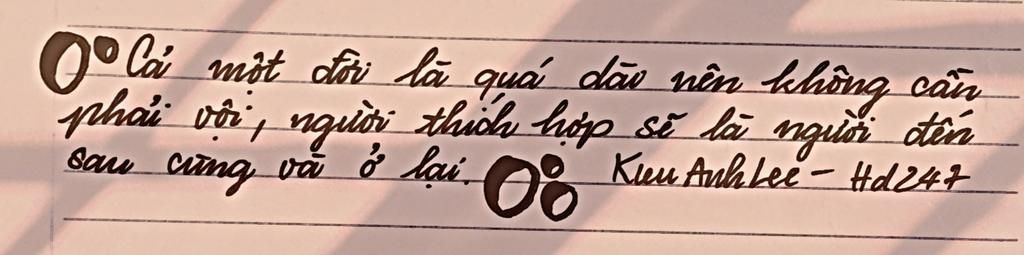 Cả một đời là quá dào nên không cần
phải vôi, người thích hợp sẽ là người đến
sau cùng và ở lại. Kuu Anh Lee - Hd247